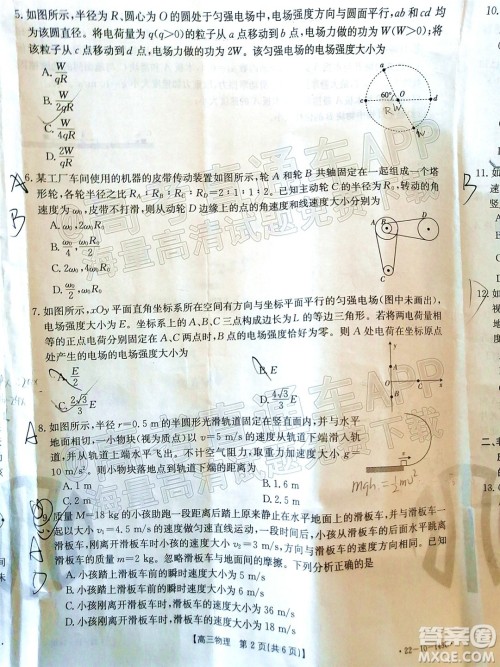 5. 如图所示，半径为 R、圆心为 O 的圆处于匀强电场中，电场强度方向与圆面平行，ab 和 cd 均
为该圆直径。将电荷量为 q(q>0)的粒子从 a 点移动到 b 点，电场力做的功为 W(W>0)；将
该粒子从 c 点移动到 d 点，电场力做的功为 2W。该匀强电场的电场强度大小为
A. W/qR
B. W/2qR
C. W/4qR
D. 2W/qR
60°
c
O
d
R
W
A
6. 某工厂车间使用的机器的皮带传动装置如图所示，轮 A 和轮 B 共轴固定在一起组成一个塔
形轮，各轮半径之比
转动的角
速度为 ω₀，皮带不打滑，则从动轮 D 边缘上的点的角速度和线速度大小分别为
B
A. ω₀，2ω₀R₀
C. 2ω₀，4ω₀R₀
A
B
D
7. 如图所示，xOy 平面直角坐标系所在空间有方向与坐标平面平行的匀强电场(图中未画出)，
电场强度大小为 E。坐标系上的 A、B、C三点构成边长为 L 的等边三角形。若将两电荷量相
等的正点电荷分别固定在 A、B 两点时，C 点处的电场强度恰好为零。则 A 处点电荷在坐标原点
处产生的电场的电场强度大小为
A. E/2
C. 2√3/3 E
D. 4√3/3 E
A
8. 如图所示，半径 r=0.5 m 的半圆形光滑轨道固定在竖直面内，并与水平
地面相切，一小物块(视为质点)以 v=5 m/s 的速度从轨道下端滑入轨
道，并从轨道上端水平飞出。不计空气阻力，取重力加速度大小 g=
10 m/s²。则小物块落地点到轨道下端的距离为
A. 1 m
B. 1.6 m
C. 2 m
D. 2.5 m
9. 质量 M=18 kg 的小孩跑一段距离后踏上原来静止在水平地面上的滑板车，小孩与滑板车一
起以大小 v₁=4.5 m/s 的速度做匀速直线运动，一段时间后，小孩从滑板车的后面水平跳离
滑板车，刚离开滑板车时小孩的速度大小 v₂=3 m/s，方向与滑板车的运动方向相同，滑板车
的质量 m=2 kg。忽略滑板车与地面间的摩擦。下列分析正确的是
D
A. 小孩踏上滑板车前的瞬时速度大小为 5 m/s
B. 小孩踏上滑板车前的瞬时速度大小为 6 m/s
C. 小孩刚离开滑板车时，滑板车的速度大小为 16 m/s
D. 小孩刚离开滑板车时，滑板车的速度大小为 18 m/s
【高三物理 第 2 页(共 6 页)】
10.
11.
12.
13.